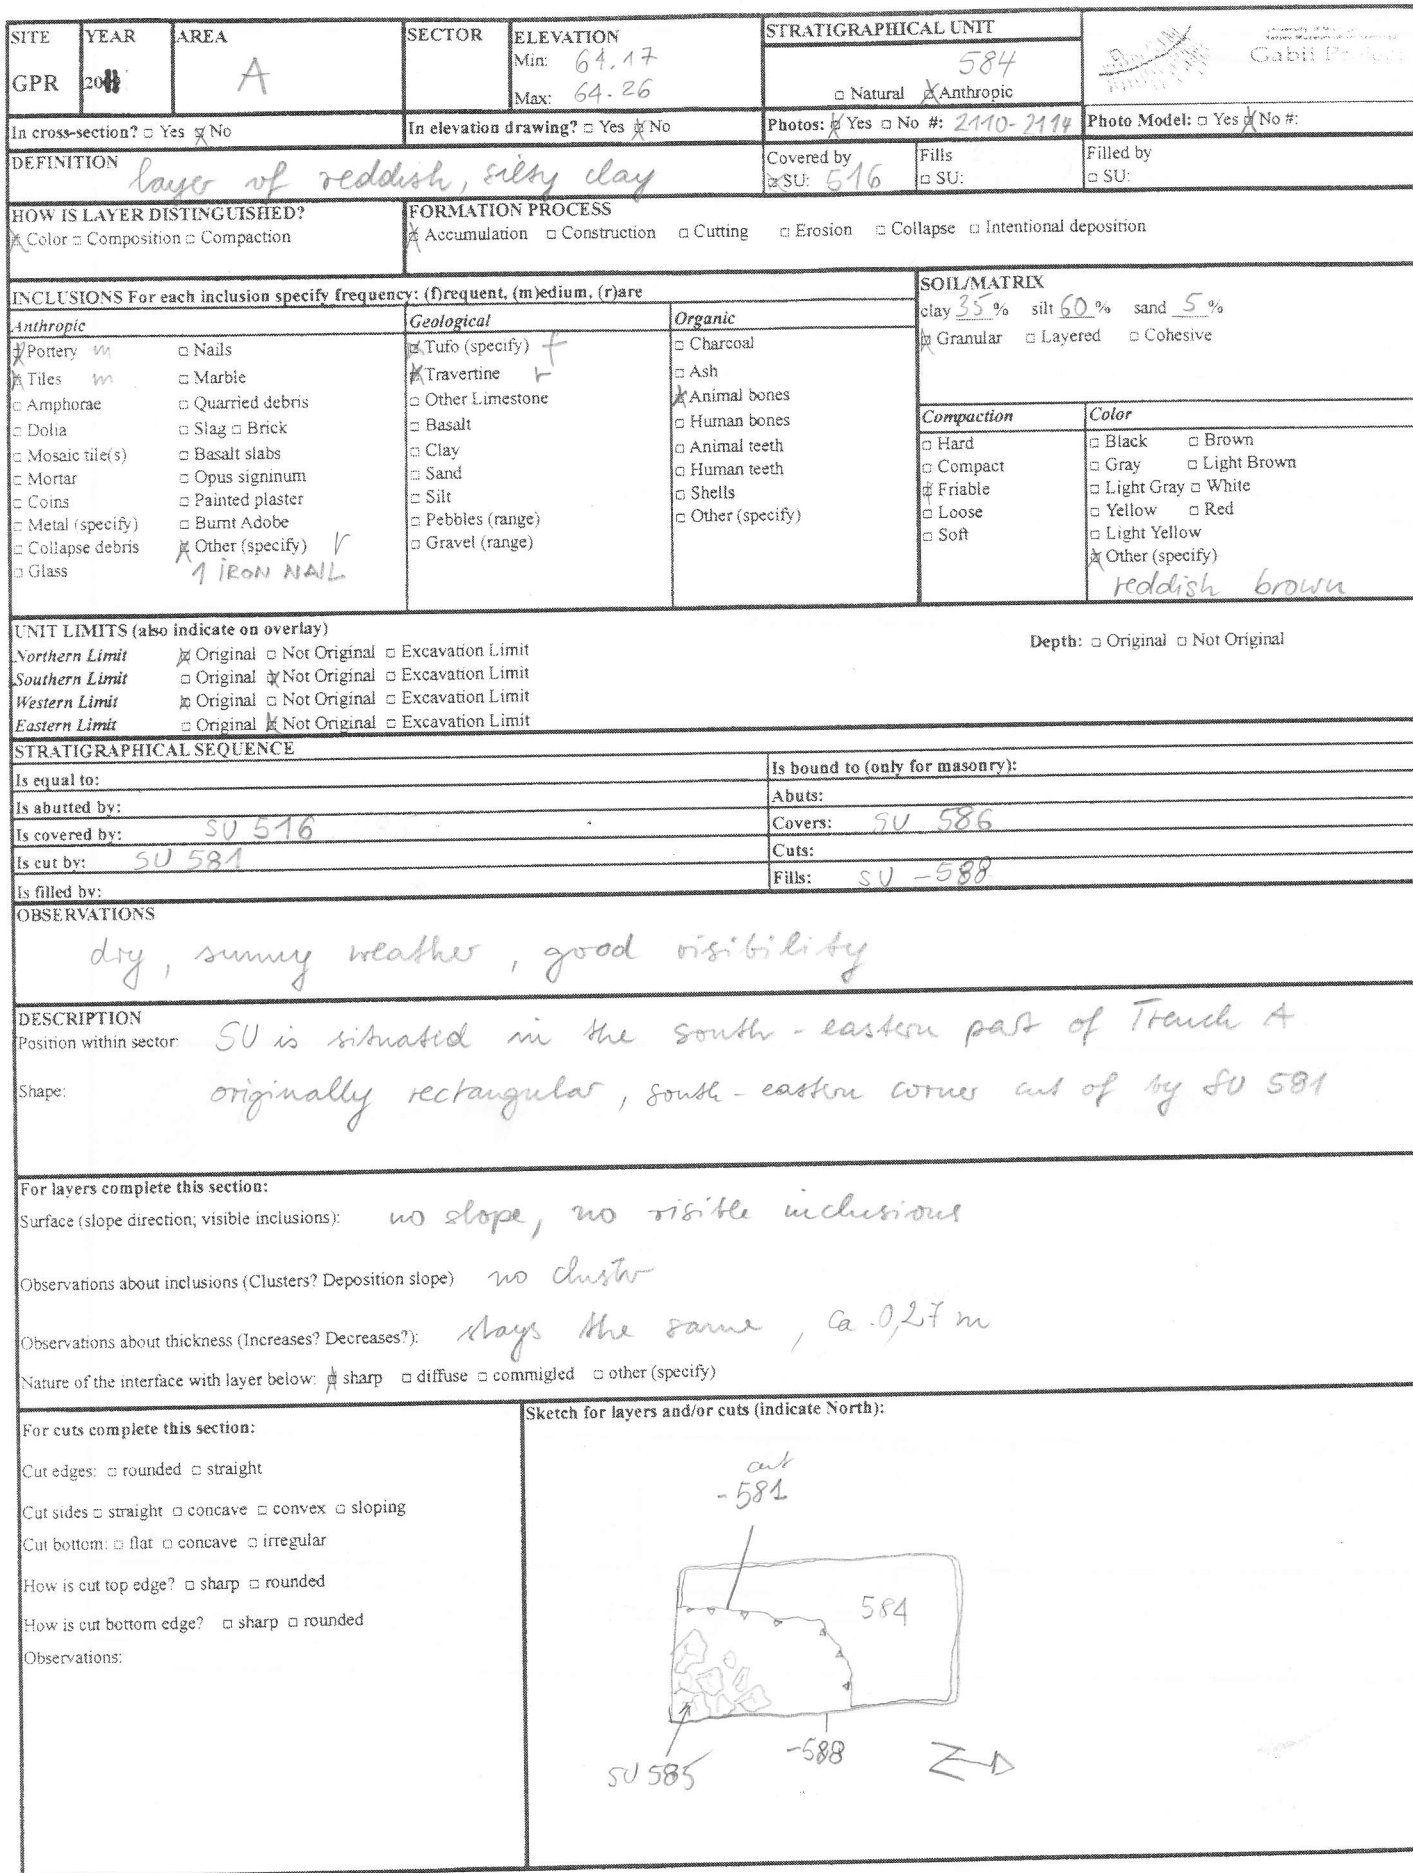 SITE YEAR AREA SECTOR ELEVATION STRATIGRAPHICAL UNIT
GPR A Min: 64.17 584
Max: 64.26 □ Natural ☒ Anthropic
Gabii Project
In cross-section? □ Yes ☒ No In elevation drawing? □ Yes ☒ No Photos: ☒ Yes □ No #: 2110-2114 Photo Model: □ Yes ☒ No #:
DEFINITION layer of reddish, silty clay Covered by ☒ SU: 516 Fills □ SU: Filled by □ SU:
HOW IS LAYER DISTINGUISHED?
☒ Color □ Composition □ Compaction
FORMATION PROCESS
☒ Accumulation □ Construction □ Cutting □ Erosion □ Collapse □ Intentional deposition
INCLUSIONS For each inclusion specify frequency: (f)requent, (m)edium, (r)are
Anthropic
☒ Pottery m □ Nails
☒ Tiles m □ Marble
□ Amphorae □ Quarried debris
□ Dolia □ Slag □ Brick
□ Mosaic tile(s) □ Basalt slabs
□ Mortar □ Opus signinum
□ Coins □ Painted plaster
□ Metal (specify) □ Burnt Adobe
□ Collapse debris ☒ Other (specify) r
□ Glass 1 IRON NAIL
Geological
☒ Tufo (specify) f
☒ Travertine r
□ Other Limestone
□ Basalt
□ Clay
□ Sand
□ Silt
□ Pebbles (range)
□ Gravel (range)
Organic
□ Charcoal
□ Ash
☒ Animal bones
□ Human bones
□ Animal teeth
□ Human teeth
□ Shells
□ Other (specify)
SOIL/MATRIX
clay 35 % silt 60 % sand 5 %
☒ Granular □ Layered □ Cohesive
Compaction
□ Hard
□ Compact
☒ Friable
□ Loose
□ Soft
Color
□ Black □ Brown
□ Gray □ Light Brown
□ Light Gray □ White
□ Yellow □ Red
□ Light Yellow
☒ Other (specify)
reddish brown
UNIT LIMITS (also indicate on overlay) Depth: □ Original □ Not Original
Northern Limit ☒ Original □ Not Original □ Excavation Limit
Southern Limit □ Original ☒ Not Original □ Excavation Limit
Western Limit ☒ Original □ Not Original □ Excavation Limit
Eastern Limit □ Original ☒ Not Original □ Excavation Limit
STRATIGRAPHICAL SEQUENCE
Is equal to: Is bound to (only for masonry):
Is abutted by: Abuts:
Is covered by: SU 516 Covers: SU 586
Is cut by: SU 581 Cuts:
Is filled by: Fills: SU -588
OBSERVATIONS
dry, sunny weather, good visibility
DESCRIPTION
Position within sector: SU is situated in the south-eastern part of Trench A
Shape: originally rectangular, south-eastern corner cut of by SU 581
For layers complete this section:
Surface (slope direction; visible inclusions): no slope, no visible inclusions
Observations about inclusions (Clusters? Deposition slope) no cluster
Observations about thickness (Increases? Decreases?): stays the same, ca. 0,27 m
Nature of the interface with layer below: ☒ sharp □ diffuse □ commigled □ other (specify)
For cuts complete this section:
Cut edges: □ rounded □ straight
Cut sides □ straight □ concave □ convex □ sloping
Cut bottom: □ flat □ concave □ irregular
How is cut top edge? □ sharp □ rounded
How is cut bottom edge? □ sharp □ rounded
Observations:
Sketch for layers and/or cuts (indicate North):
cut
-581
584
-588
SU 585
N